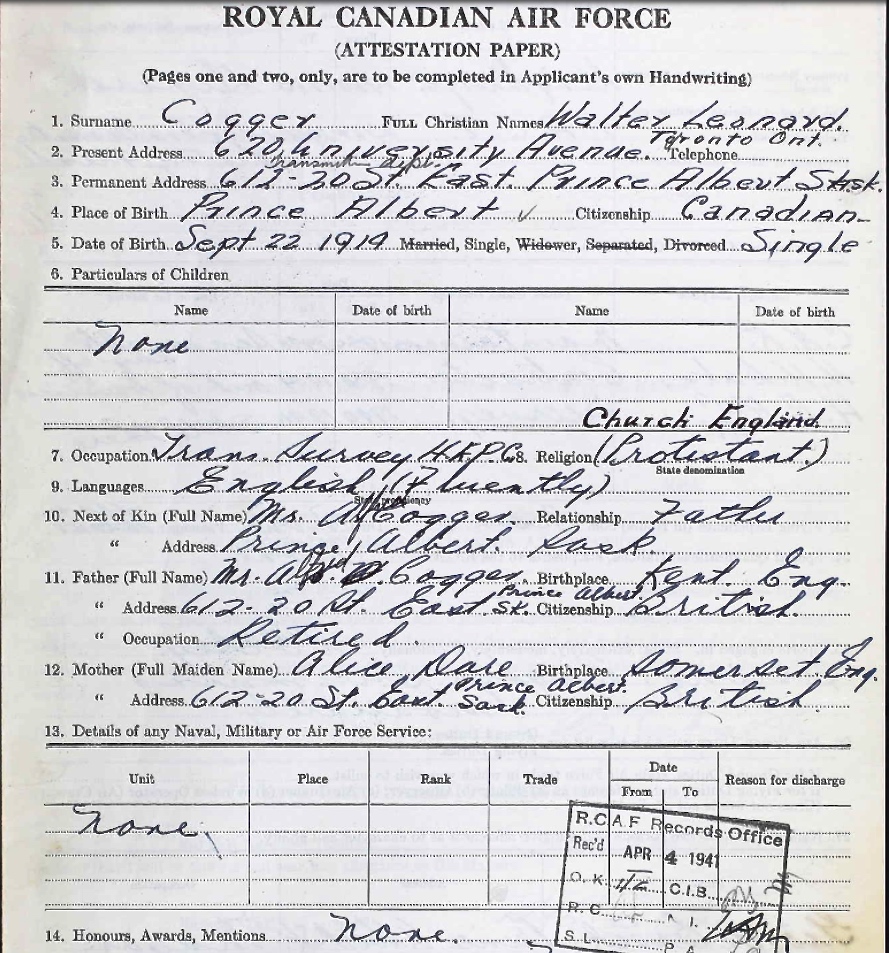 ROYAL CANADIAN AIR FORCE
(ATTESTATION PAPER)
(Pages one and two, only, are to be completed in Applicant's own Handwriting)
1. Surname Cogger FULL Christian Names Walter Leonard.
Toronto Ont.
2. Present Address 620 University Avenue. Telephone
3. Permanent Address 612-20 St. East. Prince Albert Sask.
4. Place of Birth Prince Albert Citizenship Canadian
5. Date of Birth Sept 22 1919 Married, Single, Widower, Separated, Divorced Single
6. Particulars of Children
Name Date of birth Name Date of birth
None
Church England
7. Occupation Trans. Survey H.E.P.C. 8. Religion (Protestant.)
State denomination
9. Languages English (Fluently)
State proficiency
10. Next of Kin (Full Name) Mr. A. Cogger. Relationship Father
" Address Prince Albert. Sask.
11. Father (Full Name) Mr. A. Cogger. Birthplace Kent. Eng.
" Address 612-20 St. East Prince Albert. Sk. Citizenship British.
" Occupation Retired.
12. Mother (Full Maiden Name) Alice Dare Birthplace Somerset Eng.
" Address 612-20 St. East. Prince Albert. Sask. Citizenship British
13. Details of any Naval, Military or Air Force Service:
Unit Place Rank Trade Date Reason for discharge
From To
None.
R.C.A.F Records Office
Rec'd APR 4 1941
O.K. C.I.B.
R.C. N.I.
S.L. P.A.
14. Honours, Awards, Mentions None.